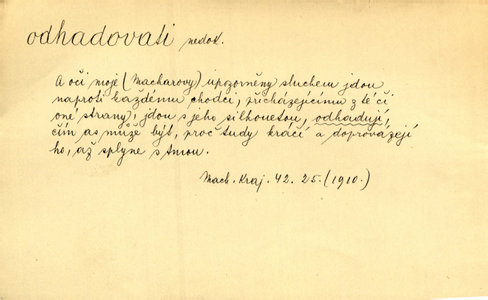 odhadovati nedok.
A oči moje (Macharovy) upozorněny sluchem jdou
naproti každému chodci, přicházejícímu z té či
oné strany, jdou s jeho silhouetou, odhadují,
čím as může být, proč tudy kráčí a doprovázejí
ho, až splyne s tmou.
Mach. Kraj. 42. 25. (1910.)